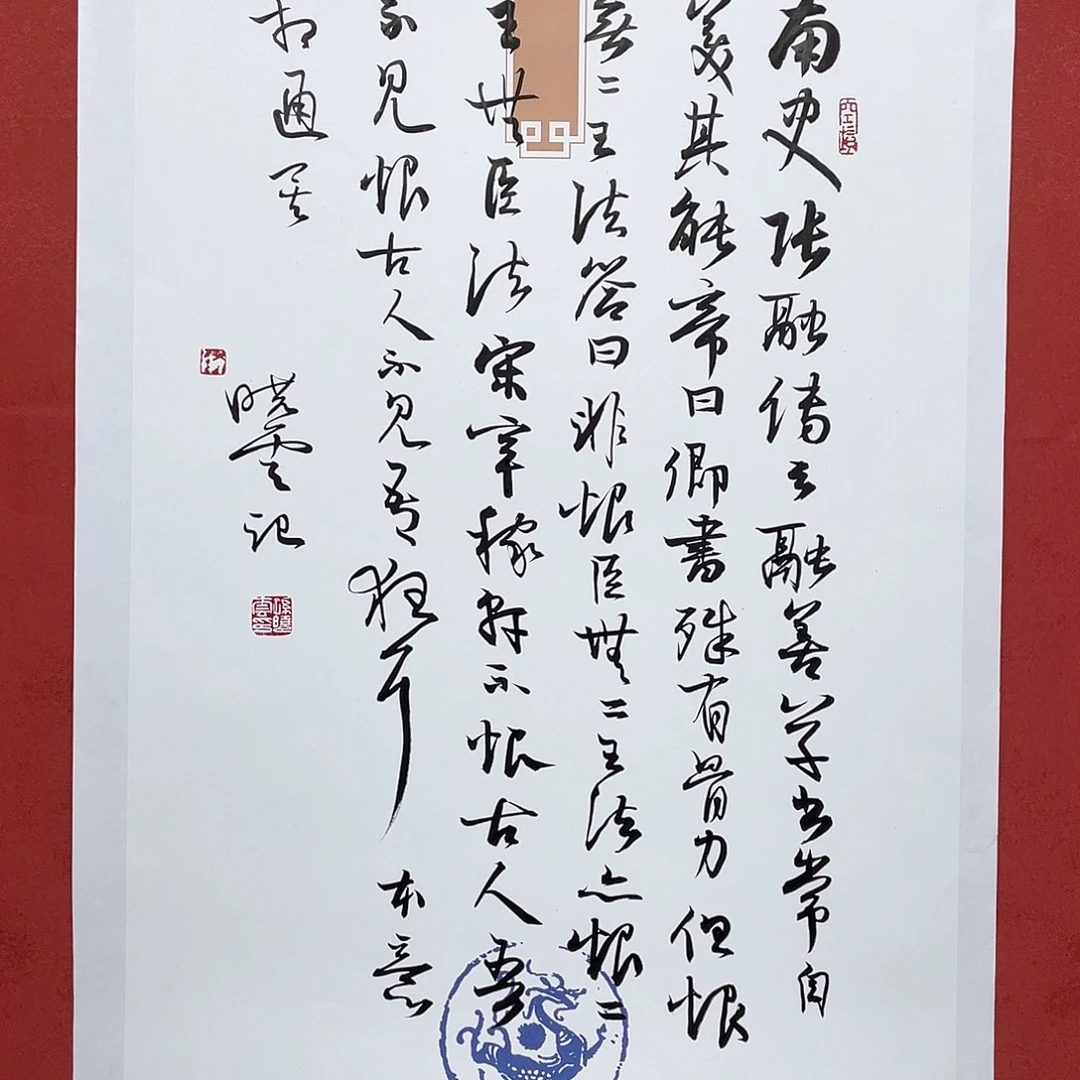 南史张融传云融善草书常自
美其能帝曰卿书殊有骨力但恨
无二王法答曰非恨臣无二王法亦恨二
王无臣法宋辛稼轩不恨古人吾
不见恨古人不见吾狂耳本意
相通矣
晓云记